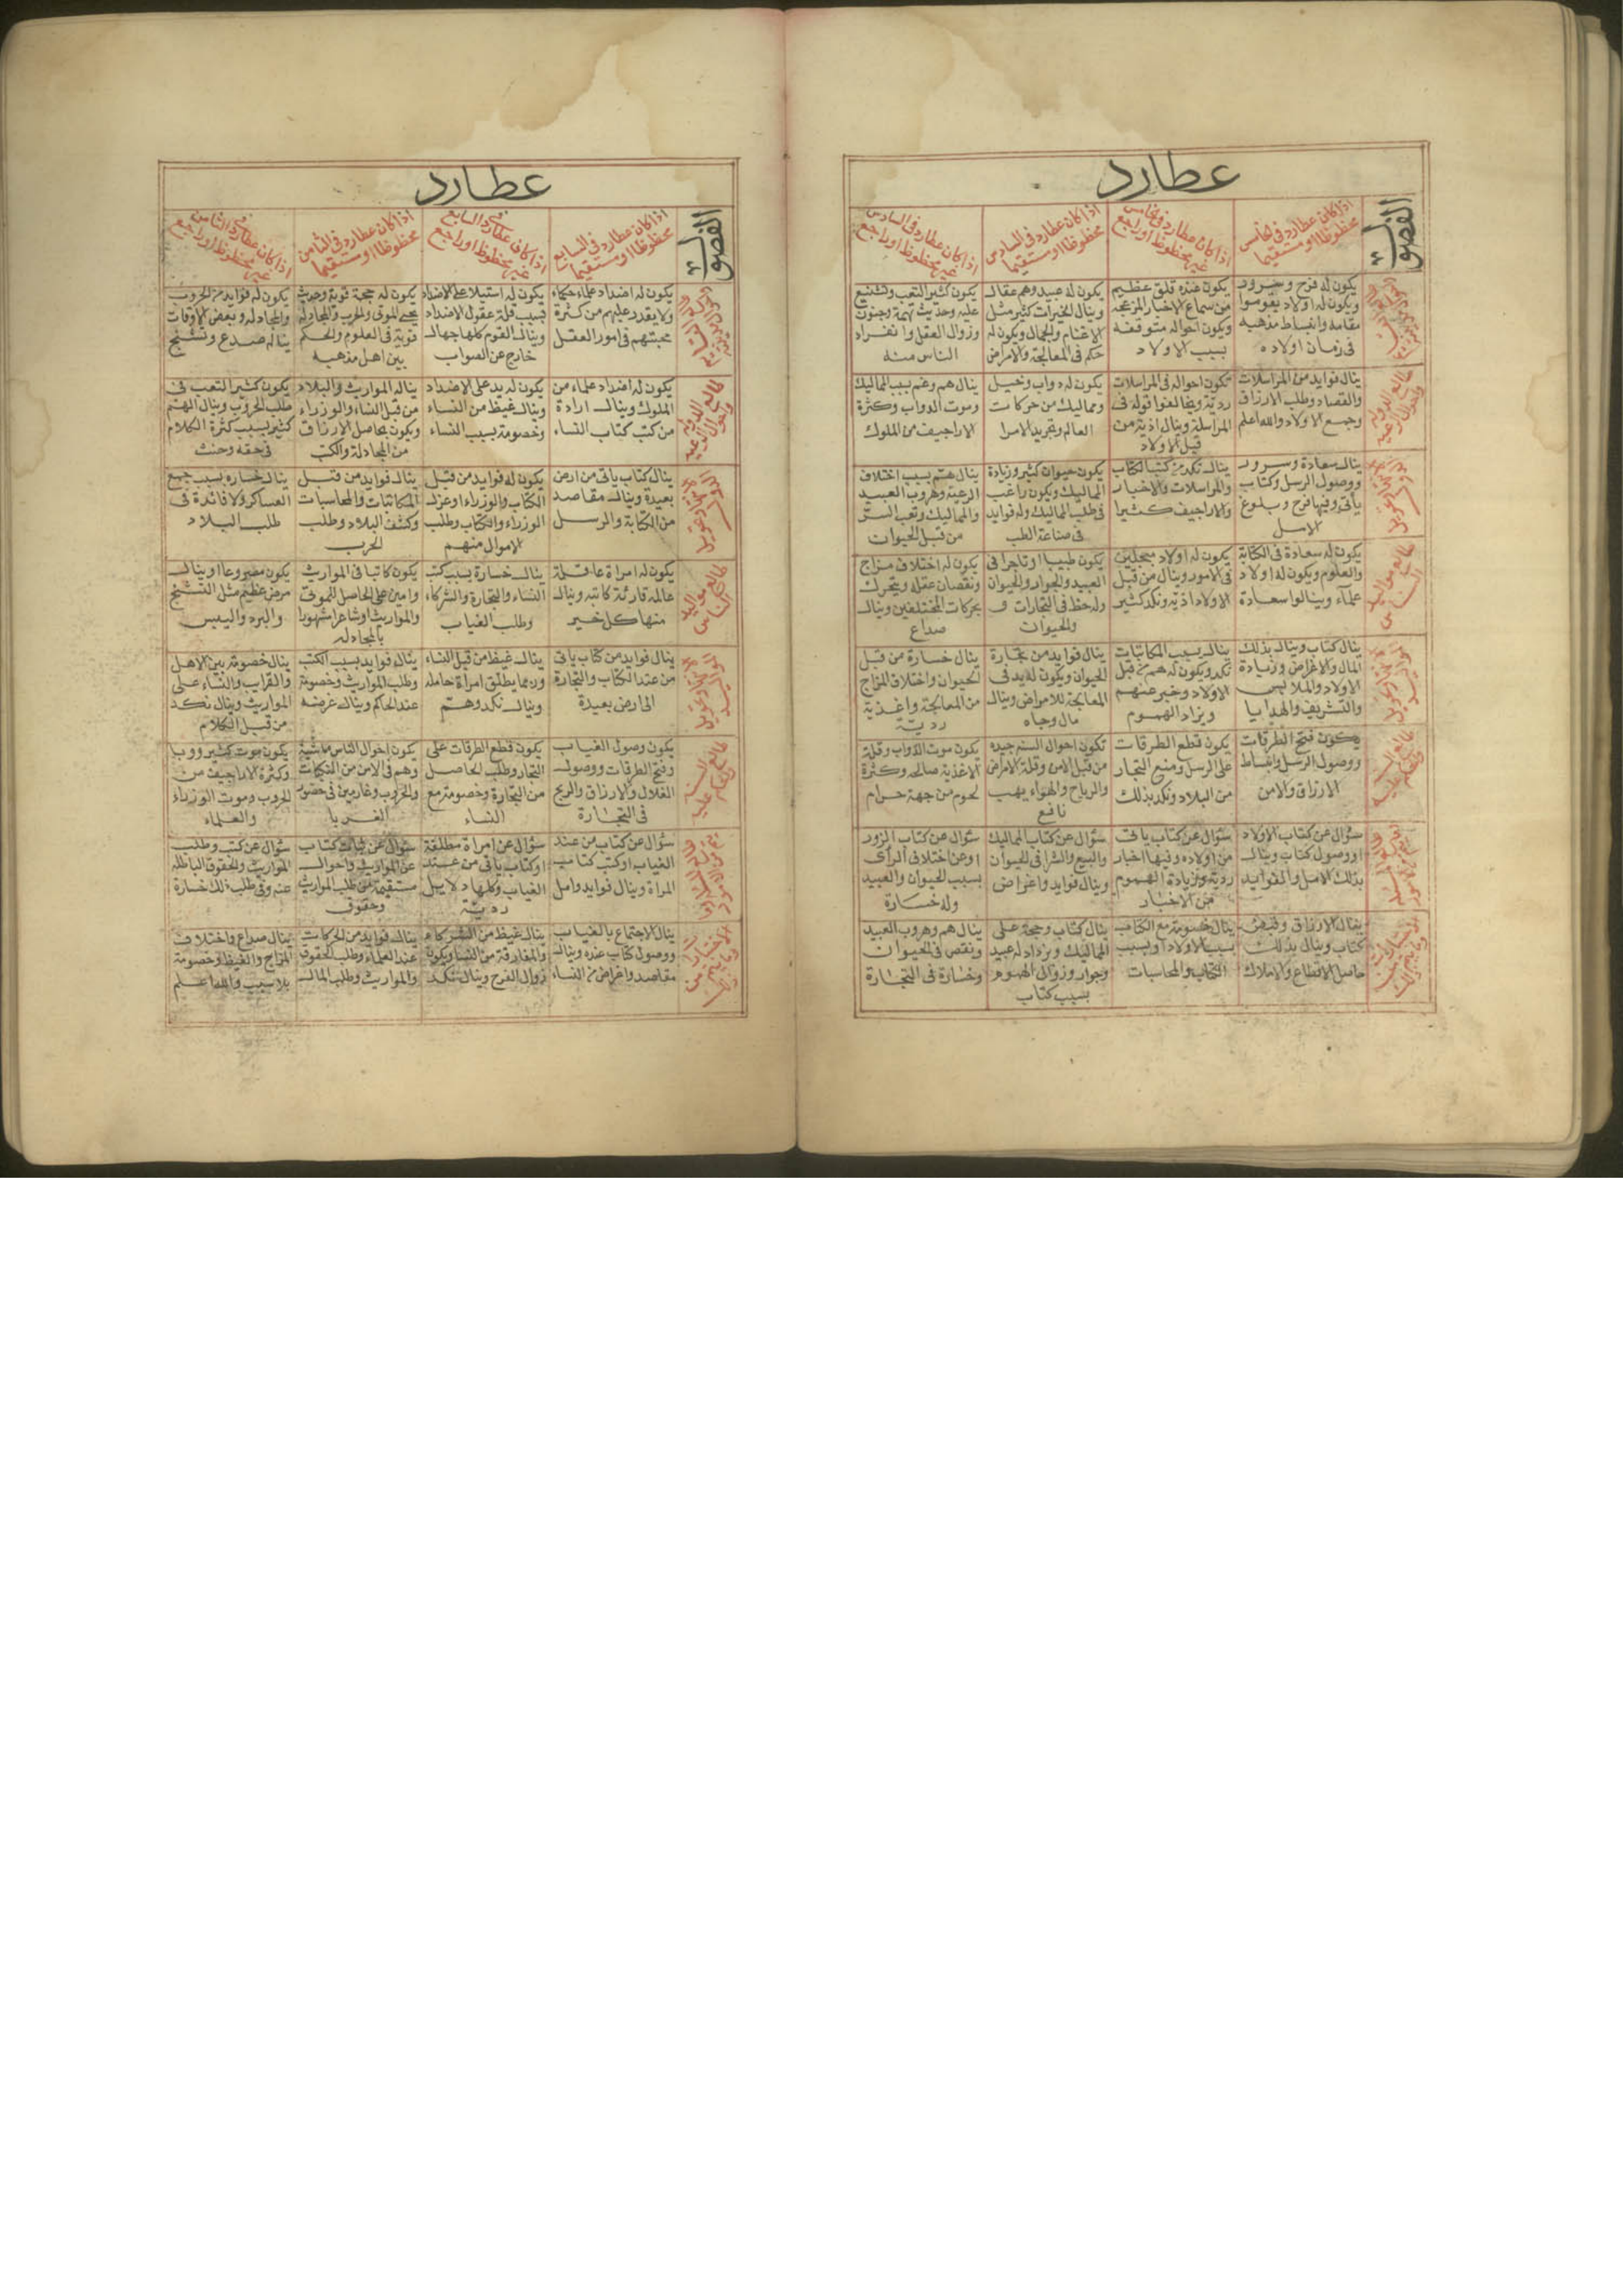 عطارد
الفصول
اذا كان عطارد في الخامس
محظوظا او مستقيما
اذا كان عطارد في الخامس
غير محظوظ او راجع
اذا كان عطارد في السادس
محظوظا او مستقيما
اذا كان عطارد في السادس
غير محظوظ او راجع
يكون له فرح وسرور
ويكون له اولاد يقوموا
مقامه وانبساط مذهبه
في زمان اولاده
يكون عنده قلق عظيم
من سماع الاخبار المزعجه
ويكون احواله متوقفه
بسبب الاولاد
يكون له عبيد وهم عقال
وينال الخيرات كثير مثل
الاغنام والجمال ويكون له
حكم في المعالجة والامراض
يكون كثير التعب وتشنيع
عليه وحديث تهمة وجنون
وزوال العقل وانفراد
الناس منه
طالع الدوله
ينال فوايد من المراسلات
والقصاد وطلب الارزاق
وجمع الاولاد والله اعلم
تكون احواله في المراسلات
ردية ويخالفوا قوله في
المراسلة وينال اذية من
قبل الاولاد
يكون له دواب وخيل
ومماليك من حركات
العالم وتجريد الامرا
ينال هم وغم بسبب المماليك
وموت الدواب وكثرة
الاراجيف من الملوك
ينال سعادة وسرور
ووصول الرسل وكتاب
يأتي وفيها فرح وبلوغ
الامل
ينال نكد من كتب الكتاب
والمراسلات والاخبار
والاراجيف كثيرا
يكون حيوان كثير وزيادة
المماليك ويكون راغب
في طلب المماليك وله فوايد
في صناعة الطب
ينال هم بسبب اختلاف
الرعية وهروب العبيد
والمماليك وتعب السر
من قبل الحيوان
طالع مواليد
الناس
يكون له سعادة في الكتابة
والعلوم ويكون له اولاد
علماء وينالوا سعادة
يكون له اولاد
في الامور وينال من قبل
الاولاد اذية ونكد كثير
يكون طبيبا او تاجرا في
العبيد والجوار والحيوان
وله حظ في التجارات و
والحيوان
يكون له اختلاف مزاج
ونقصان عقله ويتحرك
بحركات المختلفين وينال
صداع
ينال كتاب وينال بذلك
المال والاغراض وزيادة
الاولاد والملابس
والتشريف والهدايا
ينال بسبب المكاتبات
نكد ويكون له هم من قبل
الاولاد وخبر عنهم
ويزاد الهموم
ينال فوايد من تجارة
الحيوان ويكون له يد في
المعالجة للامراض وينال
مال وجاه
ينال خسارة من قبل
الحيوان واختلاف المزاج
من المعالجة واغذية
ردية
يكون فتح الطرقات
ووصول الرسل وانبساط
الارزاق والامن
يكون قطع الطرقات
على الرسل ومنع التجار
من البلاد ونكد بذلك
تكون احوال السنه جيده
من قبل الامن وقلة الامراض
والرياح والهواء يهب
نافع
يكون موت الدواب وقلة
الاغذية صالحه وكثرة
لحوم من جهة حرام
سؤال عن كتاب الاولاد
او وصول كتاب وينال
بذلك الامل والفوايد
سؤال عن كتاب ياتي
من اولاده وفيها اخبار
ردية وزيادة الهموم
من الاخبار
سؤال عن كتاب المماليك
والبيع والشرا في الحيوان
وينال فوايد واغراض
سؤال عن كتاب الزور
او عن اختلاف الرأى
بسبب الحيوان والعبيد
وله خسارة
ينال الارزاق وقبض
كتاب وينال بذلك
حاصل الاقطاع والاملاك
ينال خصومة مع الكتاب
بسبب الاولاد او بسبب
الكتاب والمحاسبات
ينال كتاب وحجة على
المماليك ويزداد له عبيد
وجوار وزوال الهموم
بسبب كتاب
ينال هم وهروب العبيد
ونقص في الحيوان
وخسارة في التجارة
عطارد
الفصول
اذا كان عطارد في السابع
محظوظا او مستقيما
اذا كان عطارد في السابع
غير محظوظ او راجع
اذا كان عطارد في الثامن
محظوظا او مستقيما
اذا كان عطارد في الثامن
غير محظوظ او راجع
يكون له اضداد علماء حكماء
ولا يقدر عليهم من كثرة
محبتهم في امور العقل
يكون له استيلا على الاضداد
بسبب قلة عقول الاضداد
وينال القوم كلها جهال
خارج عن الصواب
يكون له حجة قوية وحديث
يحيي الموتى والحرب والمجادلة
قوية في العلوم والحكم
بين اهل مذهبه
يكون له فوايد من الحروب
والمجادله وبعض الاوقات
يناله صدع وتشنج
طالع الدوله
يكون له اضداد علماء من
الملوك وينال ارادة
من كتب كتاب النساء
يكون له يد على الاضداد
وينال غيظ من النساء
وخصومة بسبب النساء
يناله المواريث والبلاد
من قبل النساء والوزراء
ويكون يحاصل الارزاق
من المجادلة والكتب
يكون كثير التعب في
طلب الحروب وينال الهم
كثير بسبب كثرة الكلام
في حقه وحنث
ينال كتاب ياتي من ارض
بعيدة وينال مقاصد
من الكتابة والرسل
يكون له فوايد من قبل
الكتاب والوزراء او عزل
الوزراء والكتاب وطلب
الاموال منهم
ينال فوايد من قبل
المكاتبات والمحاسبات
وكشف البلاد وطلب
الحرب
ينال خساره بسبب جمع
العساكر ولا فائدة في
طلب البلاد
طالع مواليد
الناس
يكون له امراة عاقلة
عالمه قارئة كاتبه وينال
منها كل خير
ينال خسارة بسبب كتب
النساء والتجارة والشركاء
وطلب الغياب
يكون كاتبا في المواريث
وامين على الحاصل للموتى
والمواريث او شاعرا مشهورا
بالمجادله
يكون مصروعا او ينال
مرض عظيم مثل التشنج
والبرد واليبس
ينال فوايد من كتاب ياتي
من عند الكتاب والتجارة
الى ارض بعيدة
ينال غيظ من قبل النساء
وربما يطلق امراة حامله
وينال نكد وهم
ينال فوايد بسبب الكتب
وطلب المواريث وخصومة
عند الحاكم وينال غرضه
ينال خصومة بين الاهل
والقرايب والنساء على
المواريث وينال نكد
من قبل الكلام
يكون وصول الغياب
وفتح الطرقات ووصول
الغلال والارزاق والربح
في التجارة
يكون قطع الطرقات على
التجار وطلب الحاصل
من التجارة وخصومة مع
النساء
يكون احوال الناس
وهم في الامن من النكبات
والحروب وغارمين في حضور
الغربا
يكون موت كثير ووبا
وكثرة الاراجيف من
الحروب وموت الوزراء
والعلماء
سؤال عن كتاب من عند
الغياب او كتب كتاب
المراة وينال فوايد وامل
سؤال عن امراة مطلقة
او كتاب ياتي من عند
الغياب وكلها دلايل
ردية
سؤال عن كتاب
عن المواريث واحوال
مستقيمة من طلب المواريث
وحقوق
سؤال عن كتب وطلب
المواريث والحقوق الباطله
عنه وفي طلب ذلك خسارة
ينال الاجتماع بالغياب
ووصول كتاب عنده وينال
مقاصد واغراض من النساء
ينال غيظ من الشركاء
والمفارقة من النساء ويكون
زوال الفرح وينال نكد
ينال فوايد من الحركات
عند العلماء وطلب الحقوق
والمواريث وطلب المال
ينال صداع واختلاف
المزاج والغيظ وخصومة
بلا سبب والله اعلم